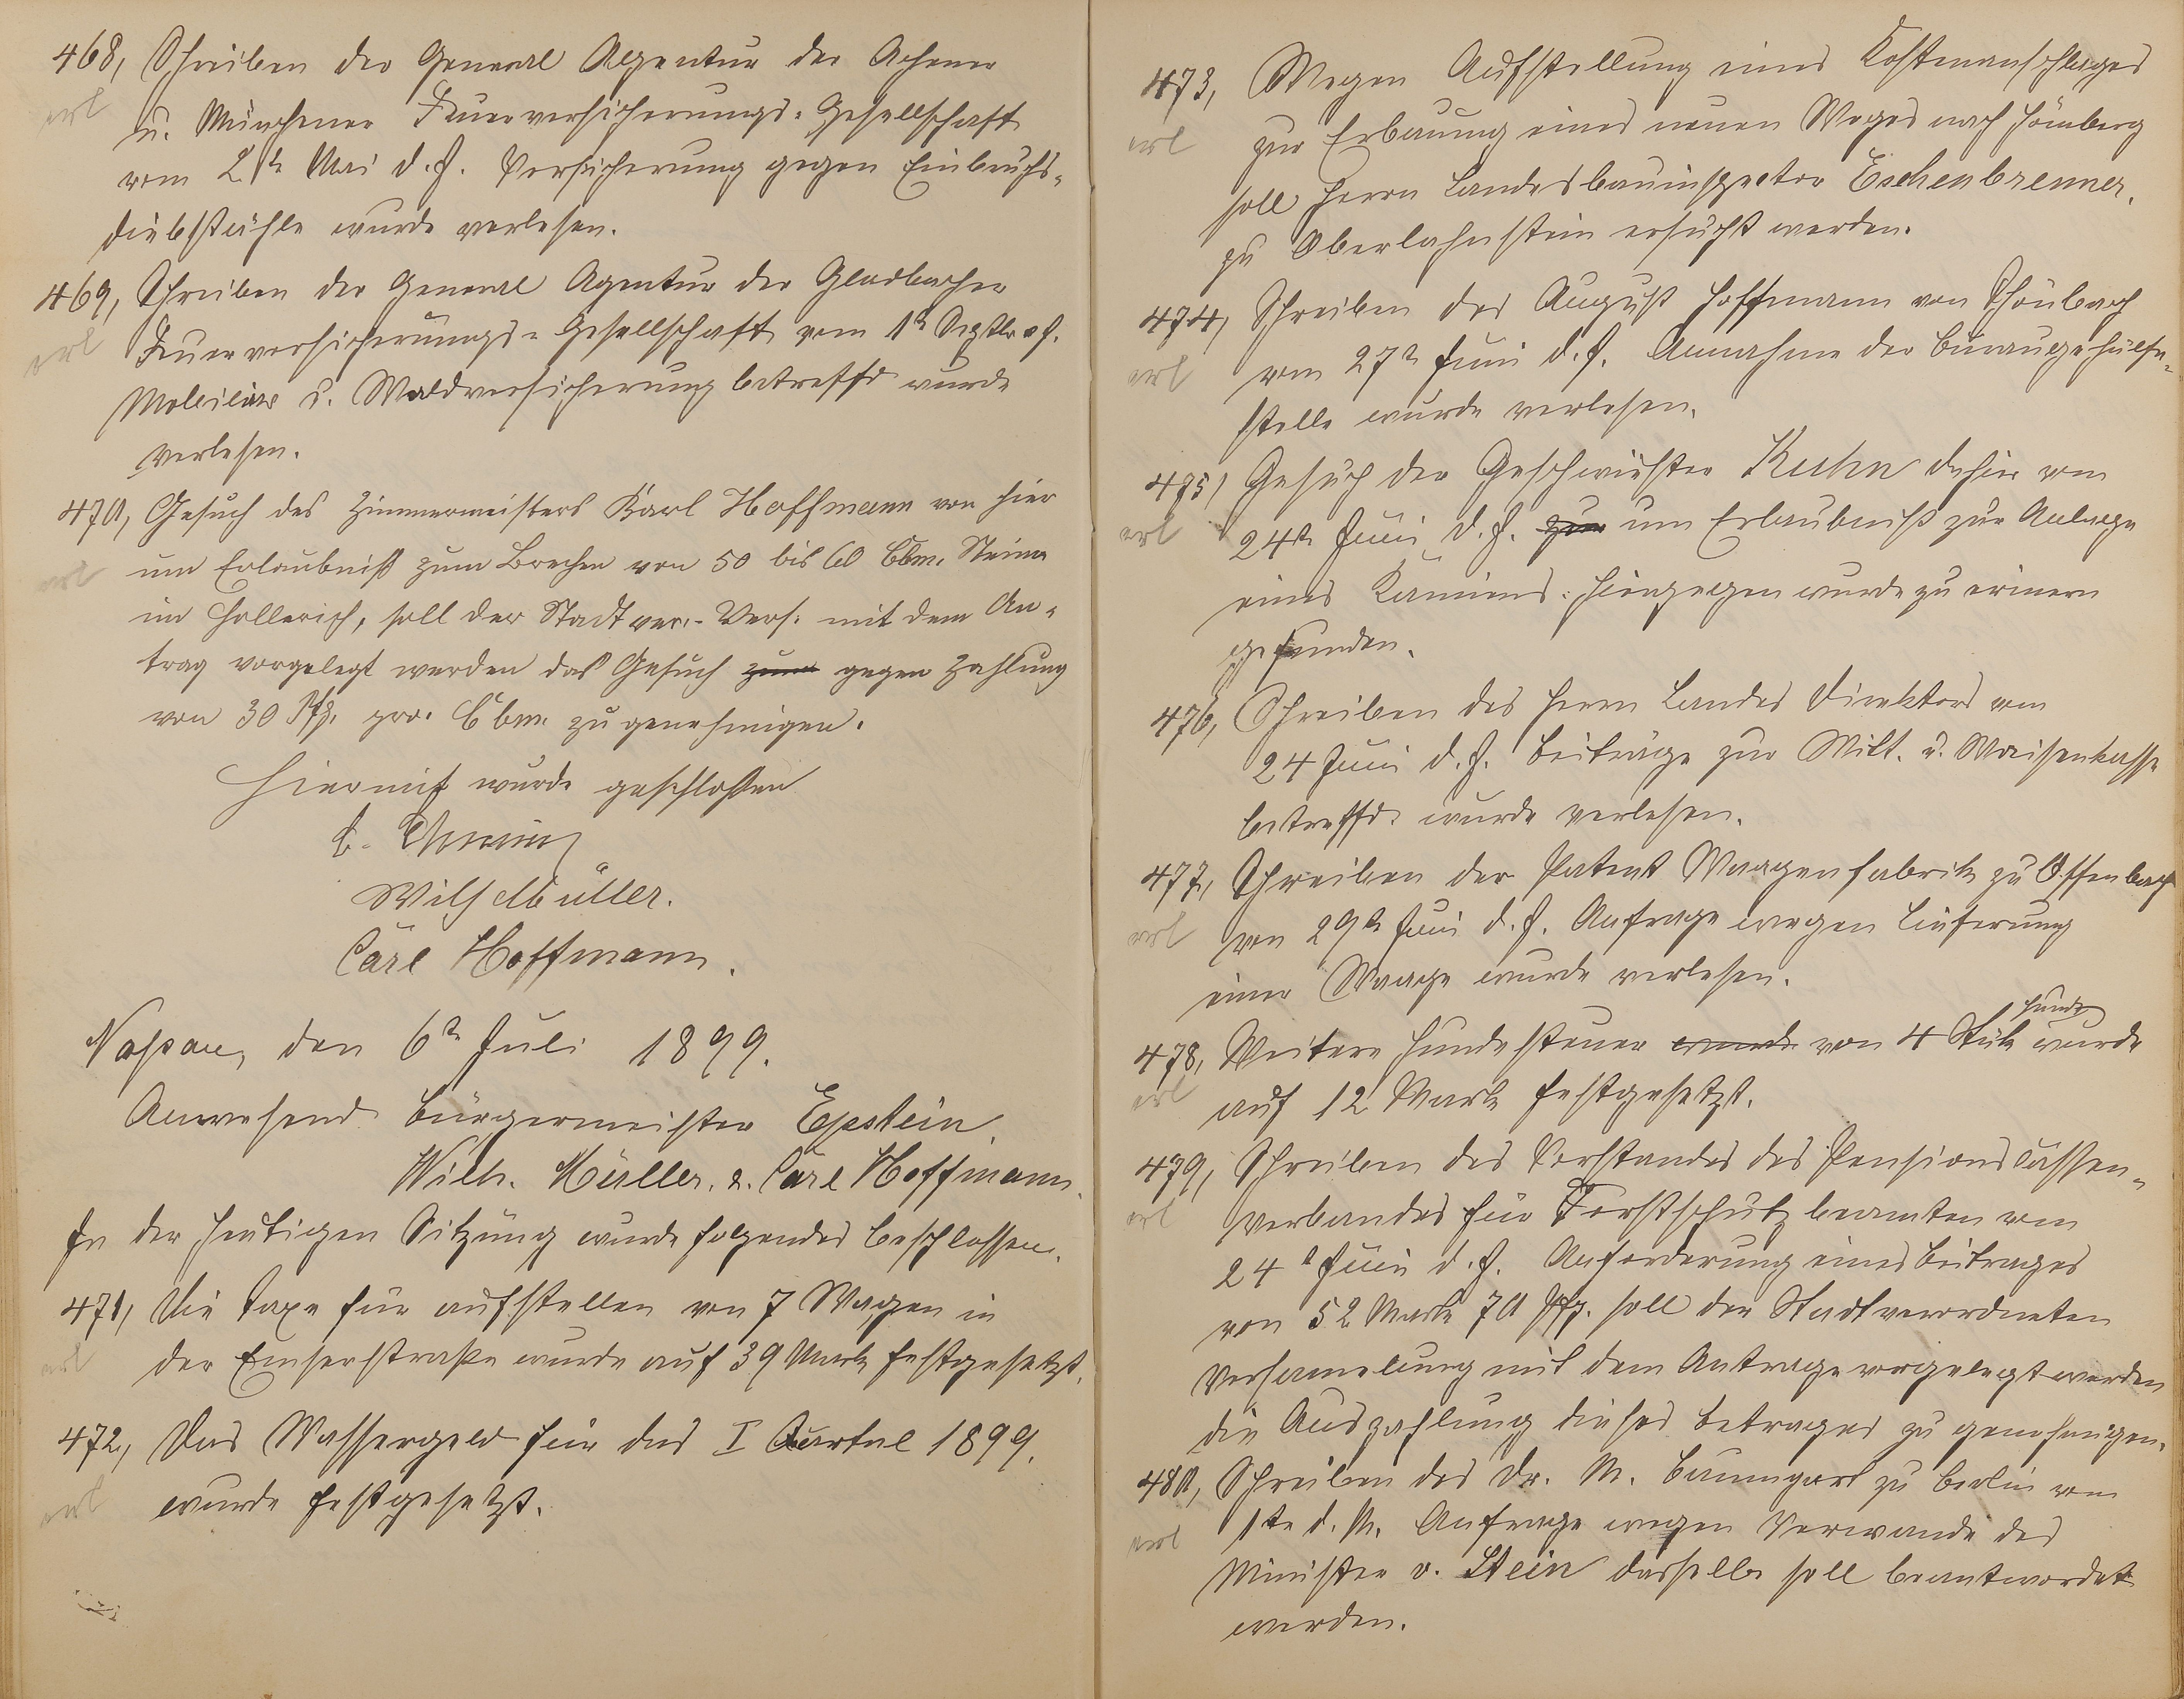 468, Schreiben der General Agentur der Achener
erl
u. Münchener Feuerversicherungs-Gesellschaft
vom 2te Mai d. J. Versicherung gegen Einbruchs-
diebstähle wurde verlesen.
469, Schreiben der General Agentur der Gladbacher
erl
Feuerversicherungs-Gesellschaft vom 1te
Mobiliar u. Waldversicherung betreffd wurde
verlesen.
470, Gesuch des Zimmermeisters Karl Hoffmann von hier
erl
um Erlaubniß zum Brechen von 50 bis 60 Cbm. Steine
im Hollerich, soll der Stadtver.-Vers. mit dem An-
trag vorgelegt werden das Gesuch zum gegen Zahlung
von 30 Pfg. pro. Cbm. zu genehmigen.
Hiermit wurde geschlossen
Wilh Müller.
Carl Hoffmann.
Nassau, den 6te Juli 1899.
Anwesend Bürgermeister Epstein,
Wilh. Müller. u. Carl Hoffmann.
In der heutigen Sitzung wurde folgendes beschlossen.
471, Die Taxe für aufstellen von 7 Wagen in
erl
der Emserstraße wurde auf 39 Mark festgesetzt.
472, Das Wassergeld für das I Quartal 1899.
erl
wurde festgesetzt.
473, Wegen Aufstellung eines Kostenanschlages
erl
zur Erbauung eines neuen Weges nach Hömberg
soll Herrn Landesbauinspector Eschenbrenner,
zu Oberlahnstein ersucht werden.
474, Schreiben des August Hoffmann von
erl
vom 27te Juni d. J. Annahme der Bureaugehülfe-
stelle wurde verlesen.
475, Gesuch der Geschwister Kuhn dahier vom
erl
24te Juni d. J. zur um Erlaubniß zur Anlage
eines Kamins: hiergegen wurde zu erinern
gefunden.
476, Schreiben des Herrn Landes Direktors vom
24 Juni d. J. Beiträge zur Witt. u. Waisenkasse
betreffd. wurde verlesen.
477, Schreiben der Patent Waagenfabrik zu Offenbach
erl
von 29te Juni d. J. Anfrage wegen Lieferung
einer Waage wurde verlesen.
478, Weitere Hundesteuer wurde von 4 Stük Hunde wurde
erl
auf 12 Mark festgesetzt.
479, Schreiben des Vorstandes des Pensionscassen-
erl
verbandes für Forstschutzbeamten vom
24te Juni d. J. Anforderung eines Beitrages
von 52 Mark 70 Pfg. soll der Stadtverordneten
Versamelung mit dem Antrage vorgelegt werden
die Auszahlung dieses Betrages zu genehmigen.
480, Schreiben des Dr. M. Baumgart zu Berlin vom
erl
1te d. M. Anfrage wegen Verwande des
Minister v. Stein dasselbe soll beantwordet
werden.